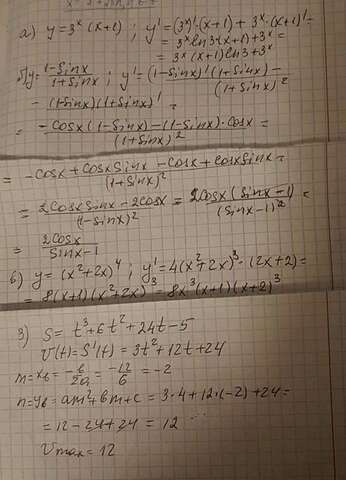 а) y = 3ˣ(x+1) ; y' = (3ˣ)'·(x+1) + 3ˣ·(x+1)' =
= 3ˣ ln3 (x+1) + 3ˣ =
= 3ˣ(x+1)ln3 + 3ˣ
б) y = (1-sinx)/(1+sinx) ; y' = (1-sinx)'(1+sinx) -
- (1-sinx)(1+sinx)' / (1+sinx)² =
= -cosx(1-sinx) - (1-sinx)·cosx / (1+sinx)² =
= -cosx + cosx sinx - cosx + cosx sinx / (1+sinx)² =
= 2cosx sinx - 2cosx / (1-sinx)² = 2cosx(sinx-1) / (sinx-1)² =
= 2cosx / sinx-1
в) y = (x²+2x)⁴ ; y' = 4(x²+2x)³·(2x+2) =
= 8(x+1)(x²+2x)³ = 8x³(x+1)(x+2)³
3) S = t³+6t²+24t-5
V(t) = S'(t) = 3t²+12t+24
m = xв = -в/2a = -12/6 = -2
n = yв = am²+вm+c = 3·4+12·(-2)+24 =
= 12-24+24 = 12
Vmax = 12